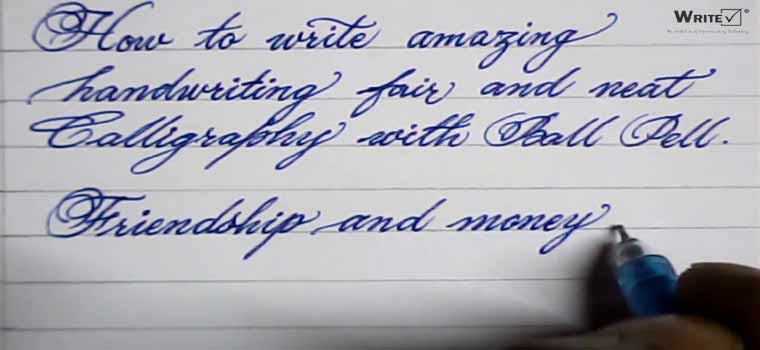 WRITE
How to write amazing
handwriting fair and neat
Calligraphy with Ball Pell.
Friendship and money